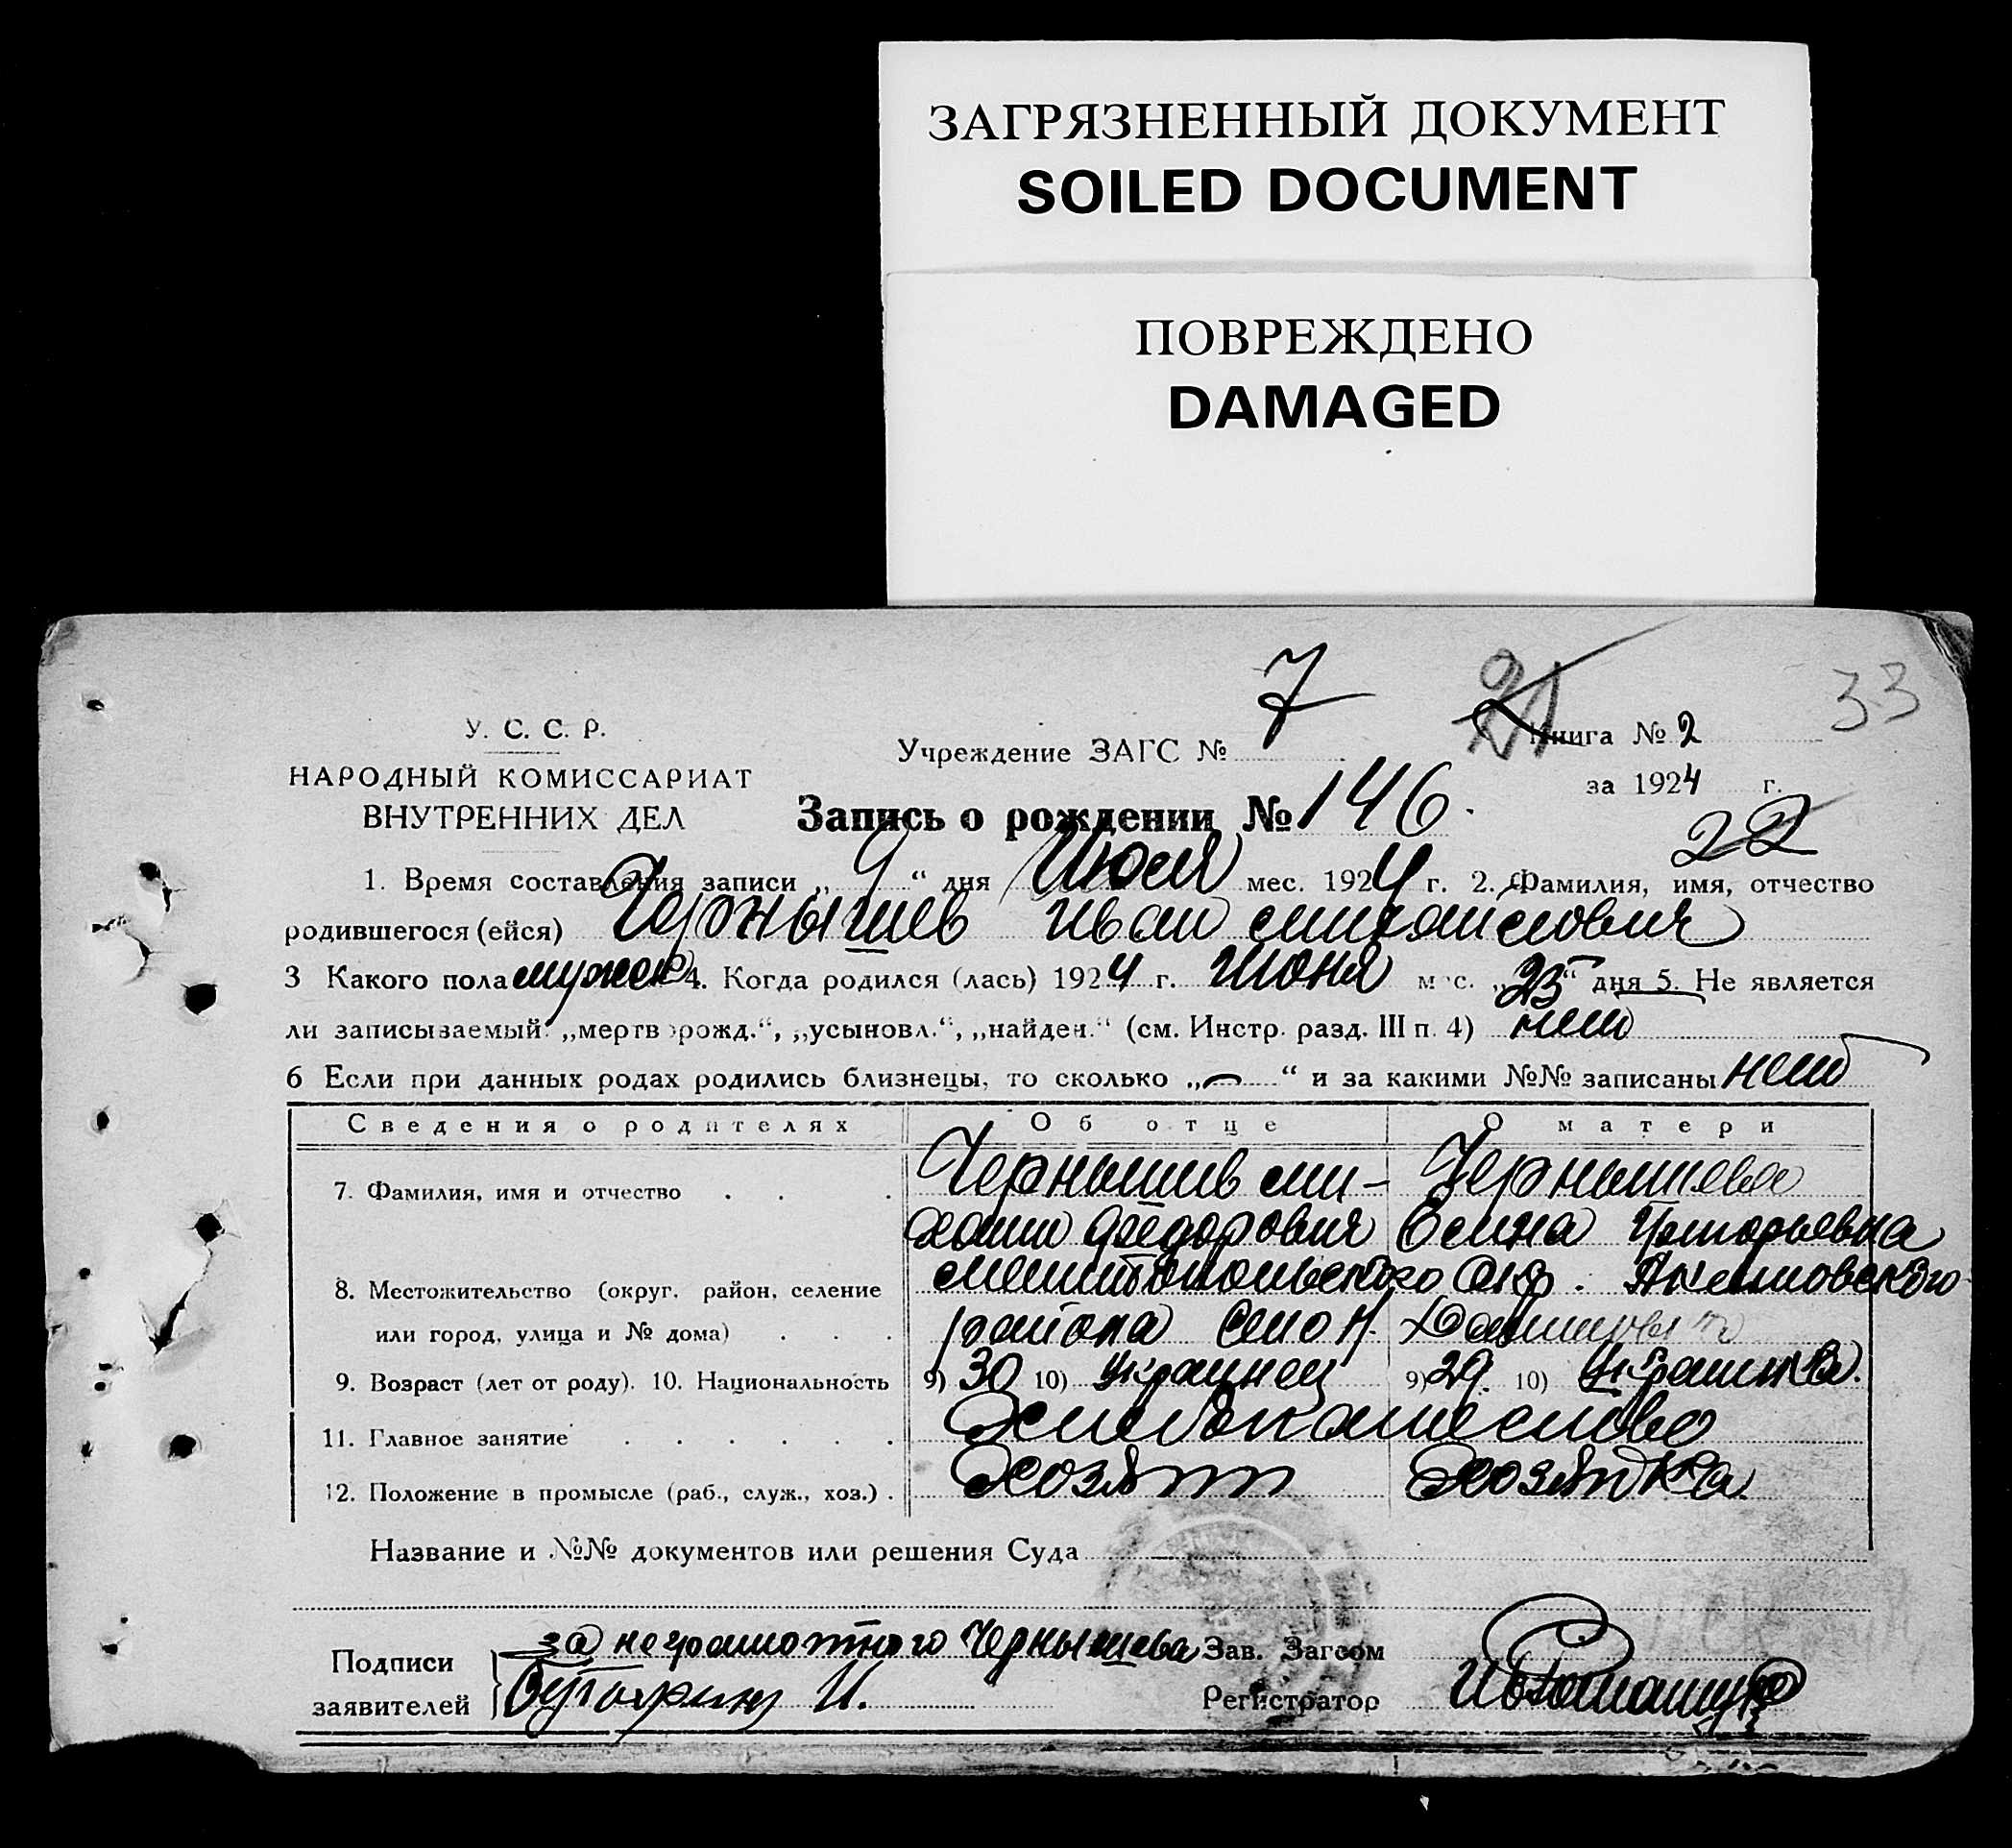 ЗАГРЯЗНЕННЫЙ ДОКУМЕНТ
SOILED DOCUMENT
ПОВРЕЖДЕНО
DAMAGED
33
У. С. С. Р.
НАРОДНЫЙ КОМИССАРИАТ
ВНУТРЕННИХ ДЕЛ
Учреждение ЗАГС № 7
21
Книга № 2
за 1924 г.
Запись о рождении № 146.
22
1. Время составления записи „9“ дня Июля мес. 1924 г. 2. Фамилия, имя, отчество
родившегося (ейся) Чернышев Иван Михайлович
3 Какого пола мужск 4. Когда родился (лась) 1924 г. Июня мес. „25“ дня 5. Не является
ли записываемый: „мертворожд.“, „усыновл.“, „найден.“ (см. Инстр. разд. III п. 4) нет
6 Если при данных родах родились близнецы, то сколько „—“ и за какими №№ записаны нет
Сведения о родителях Об отце О матери
7. Фамилия, имя и отчество Чернышев Ми- Чернышева
хаил Федорович Елена Григорьевна
8. Местожительство (округ, район, селение Мелитопольского Окр. Акимовского
или город, улица и № дома) района село Н. Даниловка
9. Возраст (лет от роду). 10. Национальность 9) 30 10) Украинец 9) 29. 10) Украинка.
11. Главное занятие Хлебопашество
12. Положение в промысле (раб., служ., хоз.) Хозяин Хозяйка
Название и №№ документов или решения Суда
Подписи заявителей за неграмотного Чернышева
И.
Зав. Загсом
Регистратор